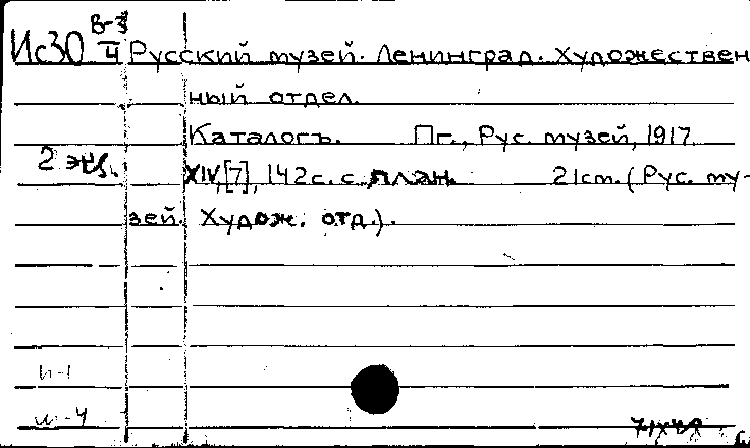 Ис30 В-3
4 Русский музей. Ленинград. Художествен
ный отдел.
Каталогъ. Пг., Рус. музей, 1917
2 экз. XIV,[7], 142с. с план. 21cm. (Рус. му-
зей. Худож. отд.).
и-1
и-4